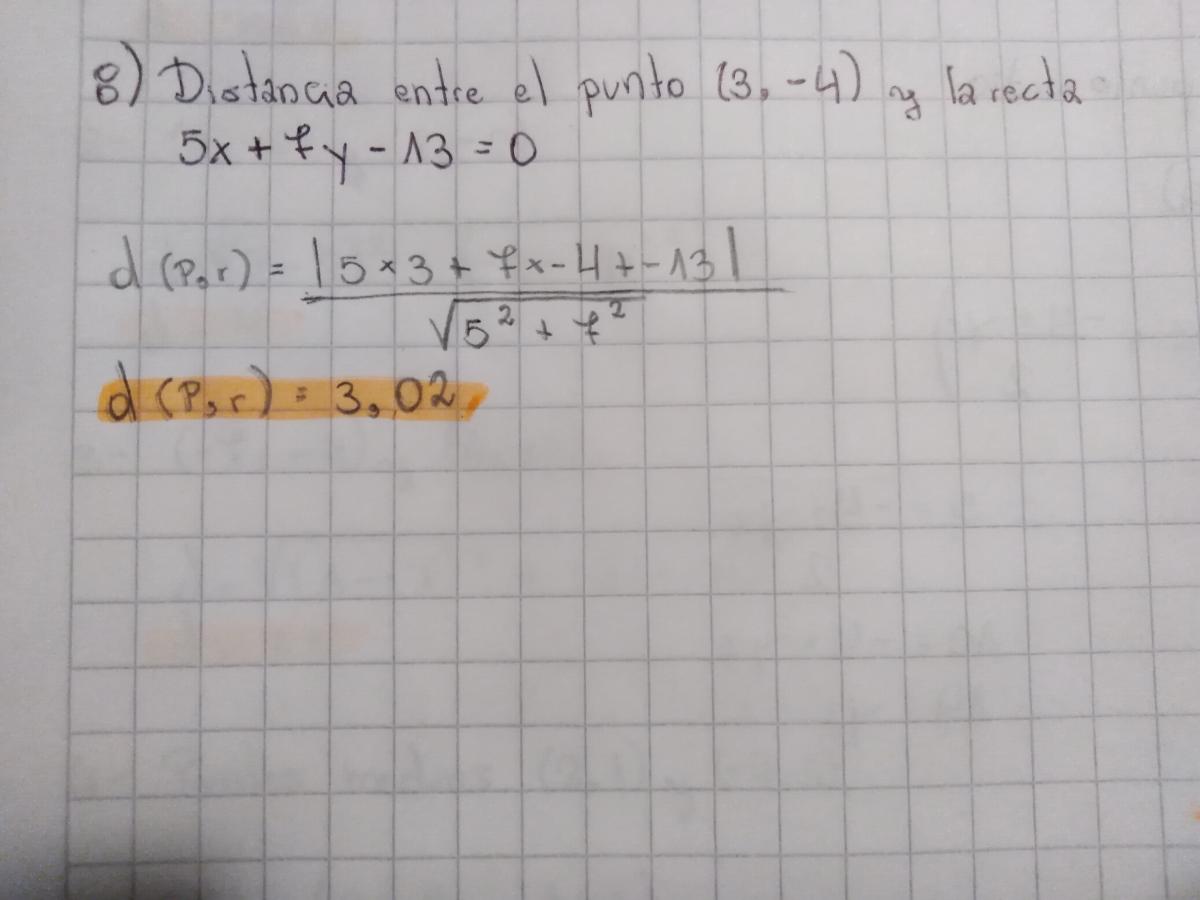 8) Distancia entre el punto (3, -4) y la recta
5x + 7y - 13 = 0
d (P, r) = |5 × 3 + 7 x - 4 + - 13|
√5² + 7²
d (P, r) = 3,02